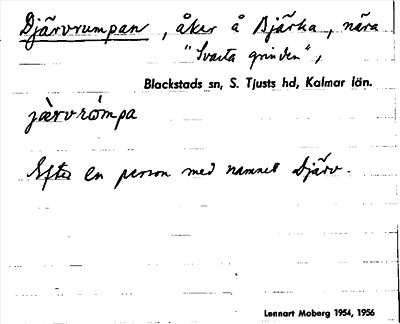 Djärvrumpan, åker å Bjärka, nära
"Svarta grinden",
Blackstads sn, S. Tjusts hd, Kalmar län.
jàrvrómpa
Efter en person med namnet Djärv.
Lennart Moberg 1954, 1956